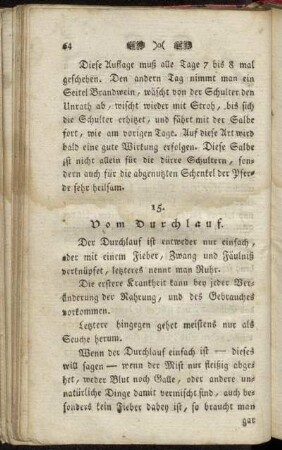 64
Diese Auflage muß alle Tage 7 bis 8 mal
geschehen. Den andern Tag nimmt man ein
Seitel Brandwein, wäscht von der Schulter den
Unrath ab, wischt wieder mit Stroh, bis sich
die Schulter erhitzt, und führt mit der Salbe
fort, wie am vorigen Tage. Auf diese Art wird
bald eine gute Wirkung erfolgen. Diese Salbe
ist nicht allein für die dürre Schultern, son-
dern auch für die abgenutzten Schenkel der Pfer-
de sehr heilsam.
15.
Vom Durchlauf.
Der Durchlauf ist entweder nur einfach,
oder mit einem Fieber, Zwang und Fäulniß
verknüpfet, letzteres nennt man Ruhr.
Die erstere Krankheit kann bey jeder Ver-
änderung der Nahrung, und des Gebrauches
vorkommen.
Letztere hingegen gehet meistens nur als
Seuche herum.
Wenn der Durchlauf einfach ist — dieses
will sagen — wenn der Mist nur fleißig abge-
het, weder Blut noch Galle, oder andere un-
natürliche Dinge damit vermischt sind, auch be-
sonders kein Fieber dabey ist, so braucht man
gar